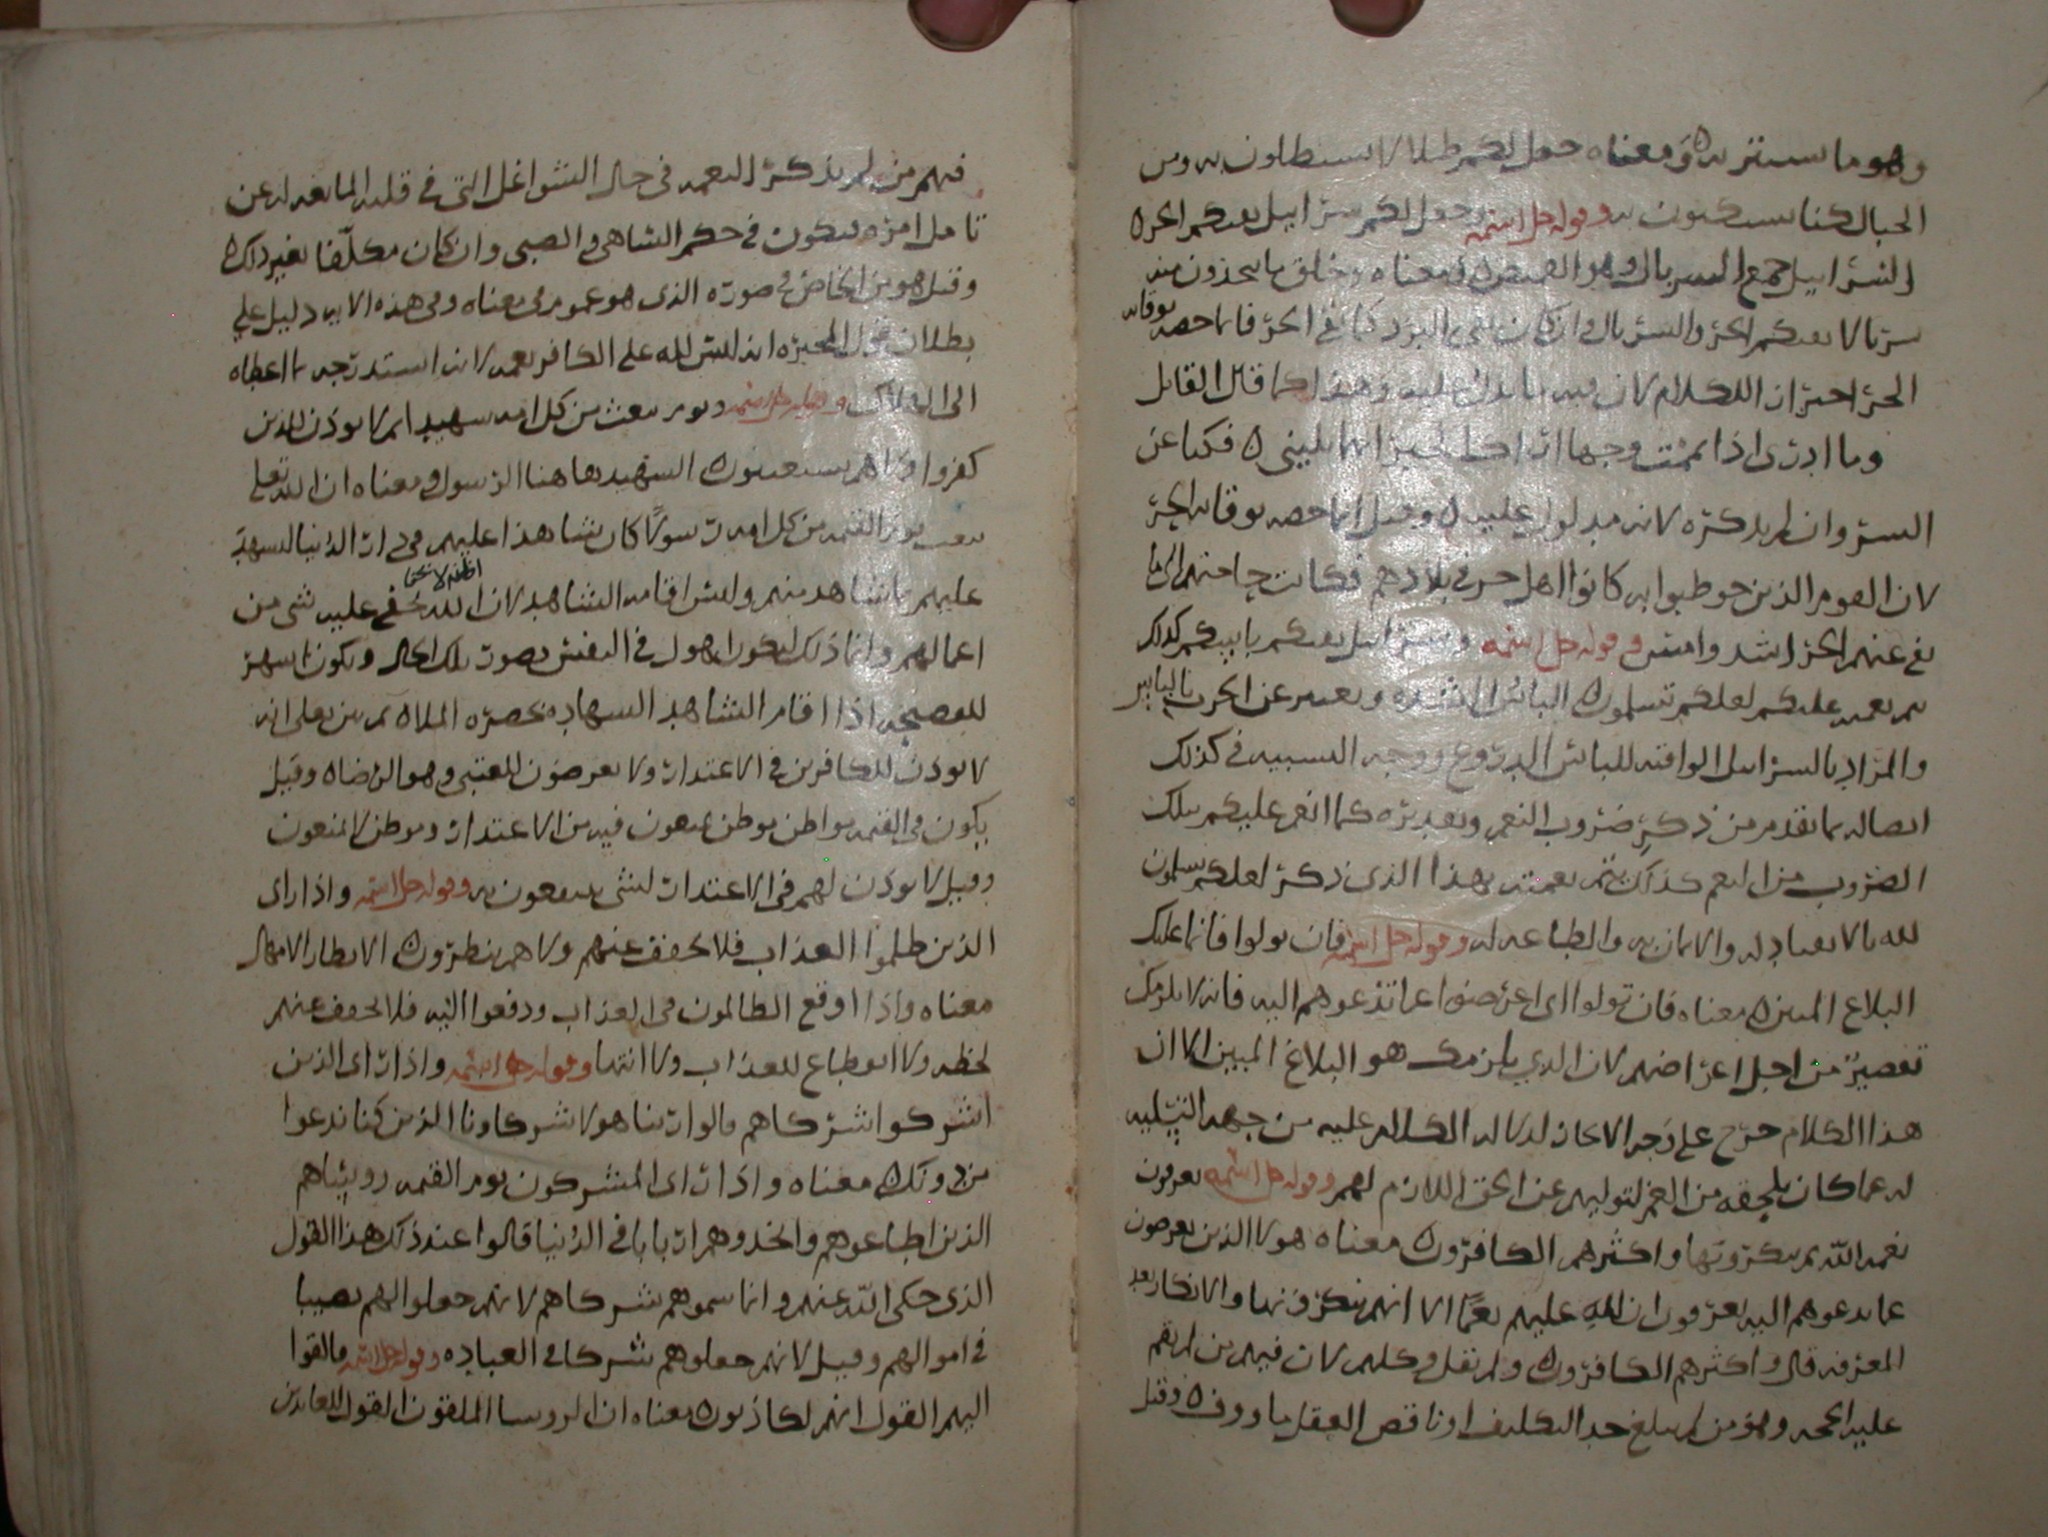 وهو ما ستتر به ومعناه جعل لكم ظلالا تستظلون به ومن
الجبال كنا تستكنون به وقوله جل اسمه وجعل لكم سرابيل تقيكم الحر ه
السرابيل جمع السربال وهو القميص ه ومعناه وخلق ما تتخذون منه
سربالا يقيكم الحر والسربال وان كان يقي البرد كما يقي الحر فانما خصه بوقايه
الحر اختزان الكلام لان فيه ما يدل عليه وهذا كما قال القايل
وما ادرى اذا يممت وجها اريد الخير ايهما يليني ه فكنا عن
الشر وان لم يذكره لانه مدلول عليه ه وقيل انما خصه بوقايه الحر
لان القوم الذين خوطبوا به كانوا اهل حر في بلادهم فكانت حاجتهم الى ما
يقي عنهم الحر اشد وامس وقوله جل اسمه وسرابيل تقيكم باسكم كذلك
يتم نعمته عليكم لعلكم تسلمون ه الباس الشده ويعبر عن الحرب بالباس
والمراد بالسرابيل الواقيه للباس الدروع ووجه التشبيه في كذلك
اتصاله بما تقدم من ذكر ضروب النعم وتقديره كما انعم عليكم بتلك
الضروب من النعم كذلك يتم نعمته بهذا الذي ذكر لعلكم تسلمون
لله بالانقياد له والايمان به والطاعه له وقوله جل اسمه فان تولوا فانما عليك
البلاغ المبين ه معناه فان تولوا اي اعرضوا عما تدعوهم اليه فانه لا يلزمك
تقصير من اجل اعراضهم لان الذي يلزمك هو البلاغ المبين الا ان
هذا الكلام خرج على وجه الايجاز لدلاله الكلام عليه من جهه التسليه
له عما كان يلحقه من الغم لتوليهم عن الحق اللازم لهم وقوله جل اسمه يعرفون
نعمه الله ثم ينكرونها واكثرهم الكافرون ه معناه هولا الذين يعرضون
عما تدعوهم اليه يعرفون ان لله عليهم نعما الا انهم ينكرونها والانكار بعد
المعرفه قال واكثرهم الكافرون ه ولم يقل وكلهم لان فيهم من لم يقم
عليه الحجه وهو من لم يبلغ حد التكليف او ناقص العقل ماووف ه وقيل
فيهم من لم يذكر النعمه في حال الشواغل التي في قلبه المانعه له عن
تامل امره فيكون في حكم الساهي والصبي وان كان مكلفا بغير ذلك ه
وقيل هو من الخاص في صورته الذي هو عموم في معناه وفي هذه الايه دليل على
بطلان قول المجبره انه ليس لله على الكافر نعمه لانه استدرجه بما اعطاه
الى الهلاك وقوله جل اسمه ويوم نبعث من كل امه شهيدا ثم لا يوذن للذين
كفروا ولا هم يستعتبون ه الشهيد هاهنا الرسول ومعناه ان الله تعلى
يبعث يوم القيمه من كل امه رسولا كان شاهدا عليهم في دار الدنيا ليشهد
اظنه لا يخفى
عليهم بما شاهد منهم وليس اقامه الشاهد لان الله يخفى عليه شي من
اعمالهم وانما ذلك ليكون اهول في النفس بصورت تلك الحال ويكون اشهر
للفضيحه اذا اقام الشاهد الشهاده بحضره الملا ه ثم بين تعلى انه
لا يوذن للكافرين في الاعتذار ولا يعرضون للعتبى وهو الرضاه وقيل
يكون في القيمه مواطن موطن يمنعون فيه من الاعتذار وموطن لا يمنعون
وقيل لا يوذن لهم في الاعتذار لشي ينتفعون به وقوله جل اسمه واذا راى
الذين ظلموا العذاب فلا يخفف عنهم ولا هم ينظرون ه الانظار الامهال
معناه واذا اوقع الظالمون في العذاب ودفعوا اليه فلا يخفف عنهم
لحظه ولا انقطاع للعذاب ولا انتها وقوله جل اسمه واذا راى الذين
اشركوا شركاهم قالوا ربنا هولا شركاونا الذين كنا ندعوا
من دونك ه معناه واذا راى المشركون يوم القيمه روساهم
الذين اطاعوهم واتخذوهم اربابا في الدنيا قالوا عند ذلك هذا القول
الذي حكى الله عنهم وانما سموهم شركاهم لانهم جعلوا لهم نصيبا
في اموالهم وقيل لانهم جعلوهم شركا في العباده وقوله جل اسمه فالقوا
اليهم القول انهم لكاذبون ه معناه ان الروسا الملقون القول للعابدين